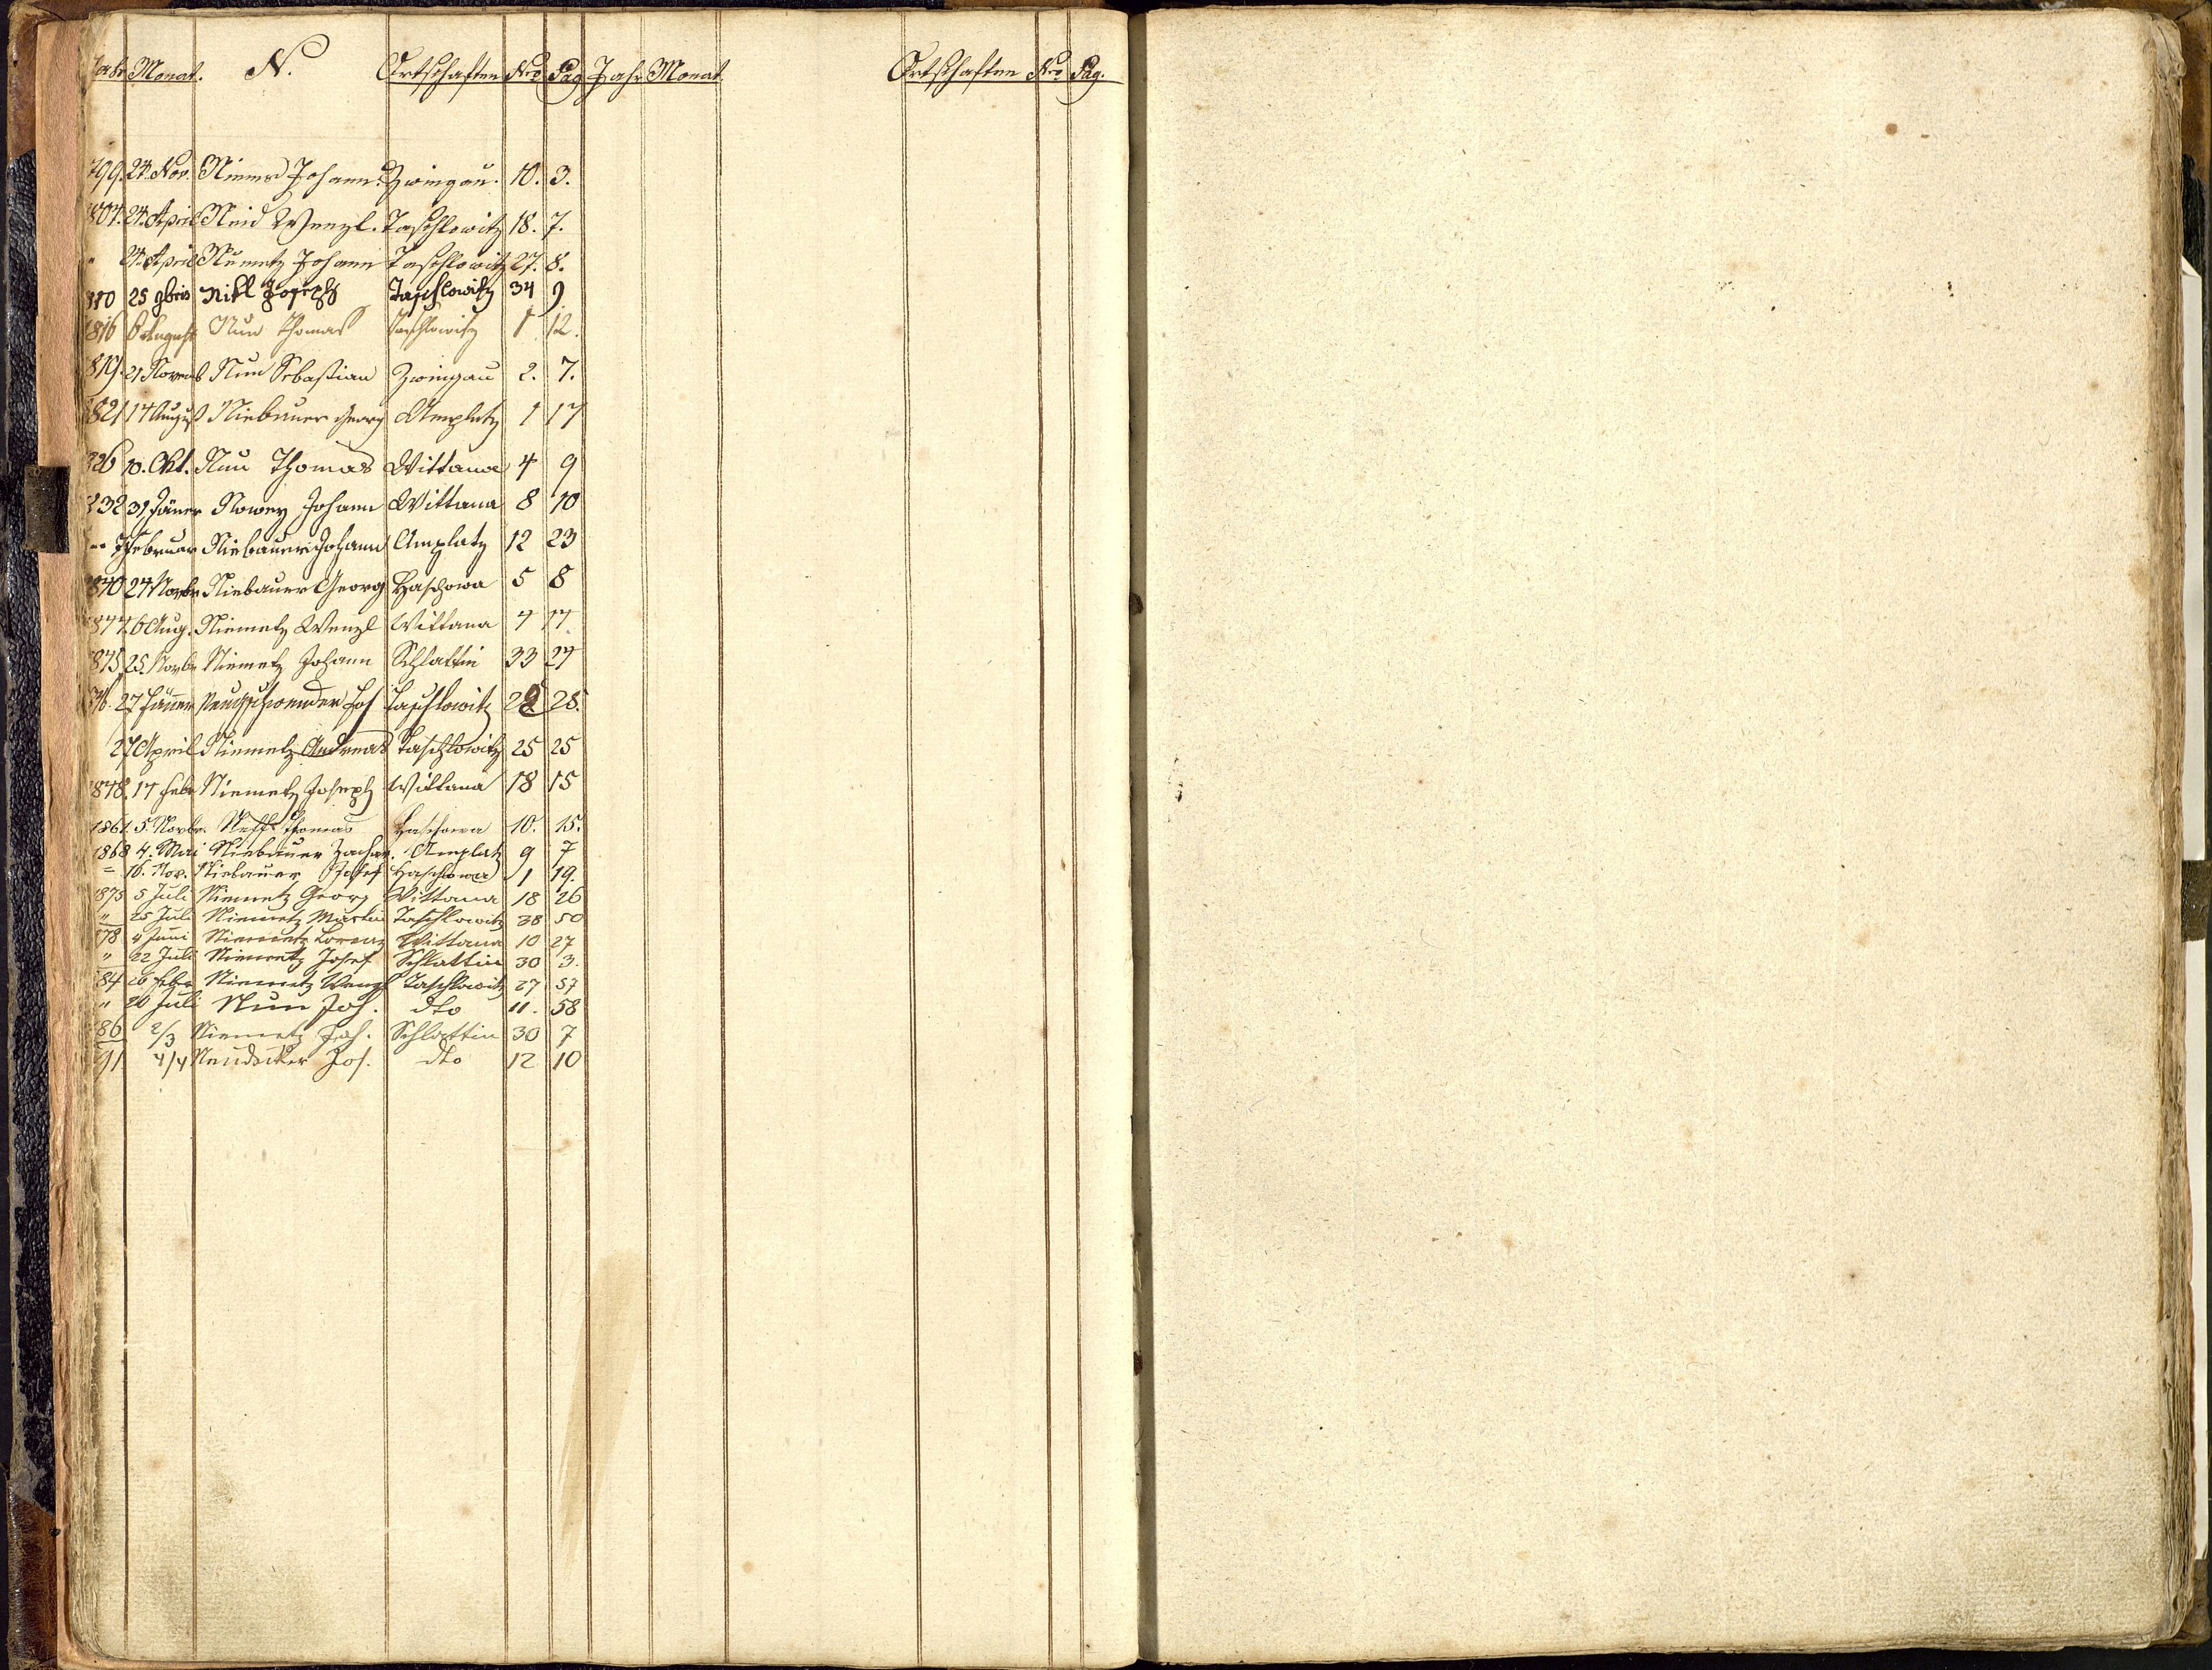 Jahr Monat. N. Ortschaften Nro Pag Jahr Monat. Ortschaften Nro Pag.
799. 24. Nov. Johann Zwingau. 10. 3.
804. 24. April Neid Wenzl. Taschlowitz 18. 7.
" 24. April Johann Taschlowitz 27. 8.
810 25 9bris Nikl Joseph Taschlowitz 34 9
1816 6 August Nun Thomas Taschlowitz 1 12.
819. 21 Novemb Nun Sebastian Zwingau 2. 7.
821 14 August Niebauer Georg Amplatz 1 17
826 10. Okt. Nun Thomas Wittana 4 9
832 31 Jäner Nowey Johann Wittana 8 10
" 7 Februar Niebauer Johann Amplatz 12 23
840 24 Novbr Niebauer Georg Haschowa 5 8
844 6 Aug. Niemetz Wenzl Wittana 4 14.
845 25 Novbr Niemetz Johann Schlattin 33 24
46. 27 Jäner Neugschwender Jos Taschlowitz 28 25.
27 April Niemetz Andreas Taschlowitz 25 25
848. 14 Febr Niemetz Joseph Wittana 18 15
1861. 5. Novbr. Neffl Thomas Haschowa 10. 15.
1868 4. Mai Niebauer Zachar. Amplatz 9 7
— 16. Nov. Niebauer Josef Haschowa 1 19.
1875 5 Juli Niemetz Georg Wittana 18 26
" 25 Juli Niemetz Martin Taschlowitz 38 50
878 4 Juni Niemetz Lorenz Wittana 10 27
" 22 Juli Niemetz Josef Schlattin 30 3.
84 26 Febr Niemetz Wenzl Taschlowitz 27 57
" 20 Juli Nun Joh. dto 11. 58
86 2/3 Niemetz Joh. Schlattin 30 7
91 4/4 Neudecker Jos. dto 12 10